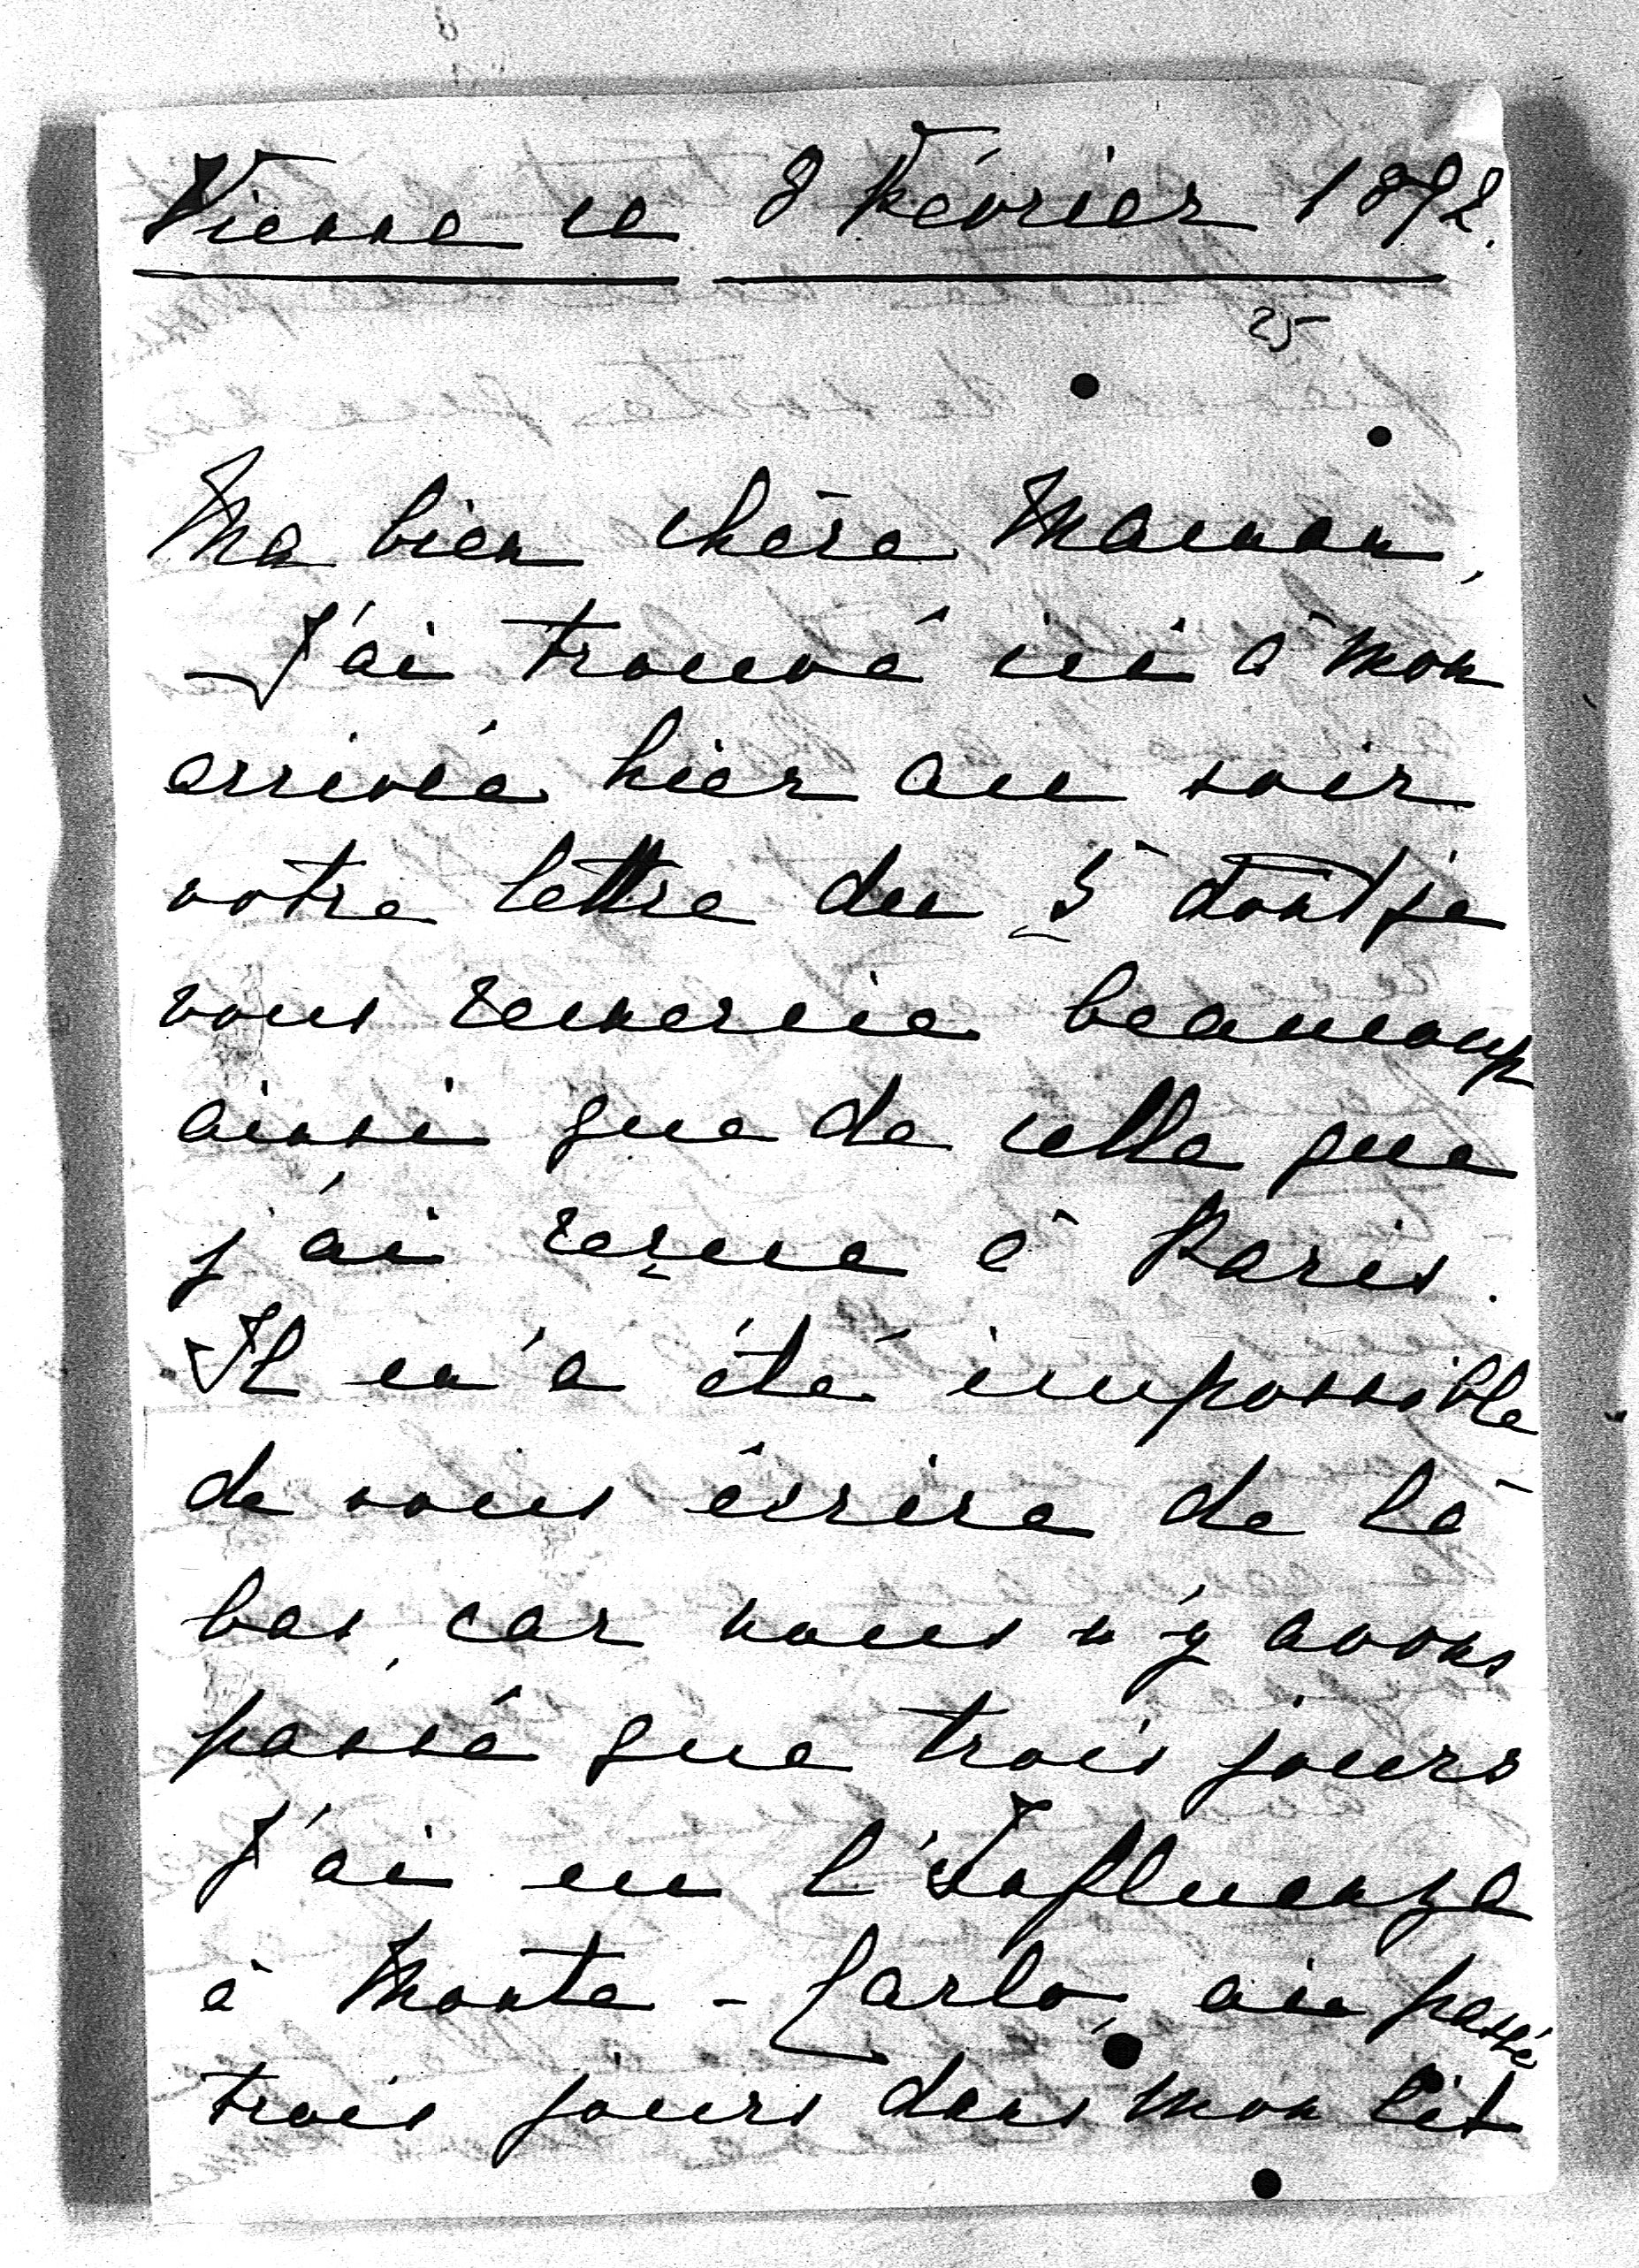 Vienne le 8 Février 1892.
25
Ma bien chère Maman,
J'ai trouvé ici à mon
arrivée hier au soir
votre lettre du 5 dont je
vous remercie beaucoup
ainsi que de celle que
j'ai reçue à Paris.
Il m'a été impossible
de vous écrire de là
bas, car nous n'y avons
passé que trois jours
J'ai eu l'Influenza
à Monte-Carlo, ai passé
trois jours dans mon lit